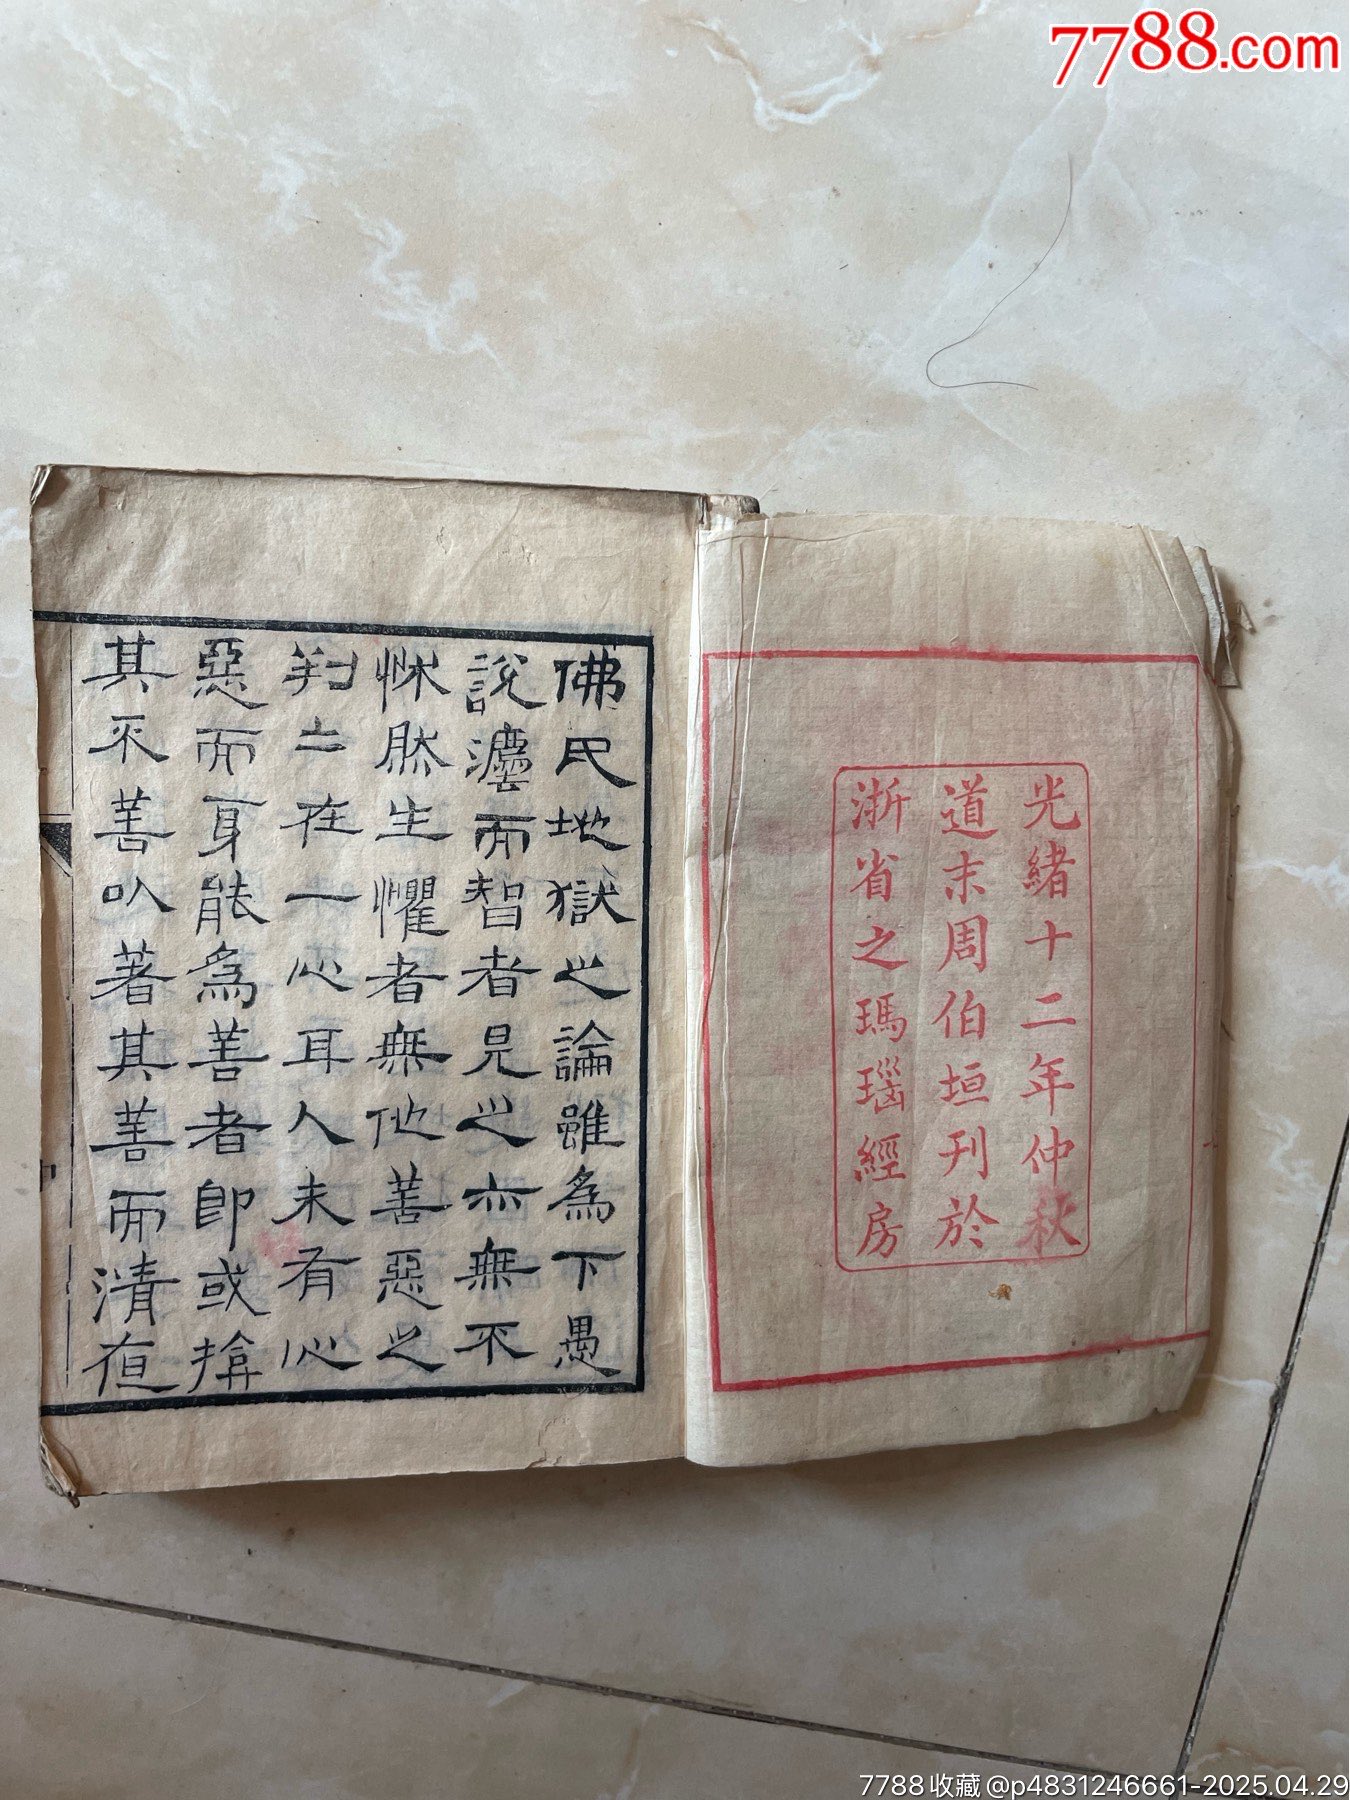 7788.com
光緒十二年仲秋
道末周伯垣刊於
浙省之瑪瑙經房
佛氏地獄之論雖為下愚
說灋而智者見之亦無不
怵然生懼者無他善惡之
判亦在一心耳人未有心
惡而身能為善者即或揜
其不善以著其善而清夜
7788收藏@p4831246661-2025.04.29